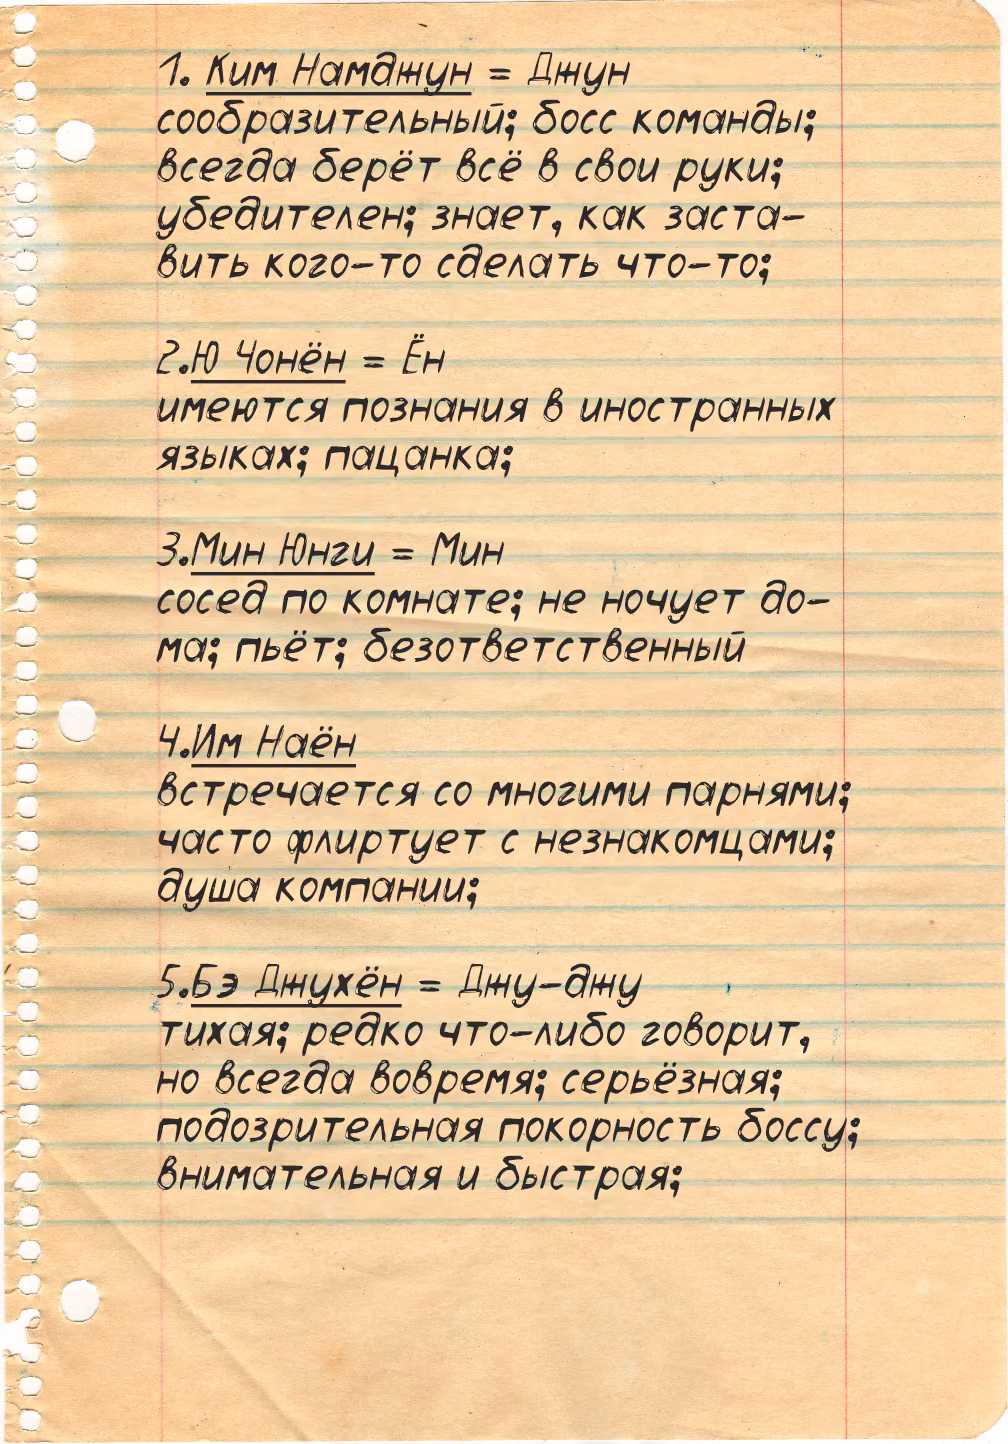 1. Ким Намджун = Джун
сообразительный; босс команды;
всегда берёт всё в свои руки;
убедителен; знает, как заста-
вить кого-то сделать что-то;
2.Ю Чонён = Ён
имеются познания в иностранных
языках; пацанка;
3.Мин Юнги = Мин
сосед по комнате; не ночует до-
ма; пьёт; безответственный
4.Им Наён
встречается со многими парнями;
часто флиртует с незнакомцами;
душа компании;
5.Бэ Джухён = Джу-джу
тихая; редко что-либо говорит,
но всегда вовремя; серьёзная;
подозрительная покорность боссу;
внимательная и быстрая;